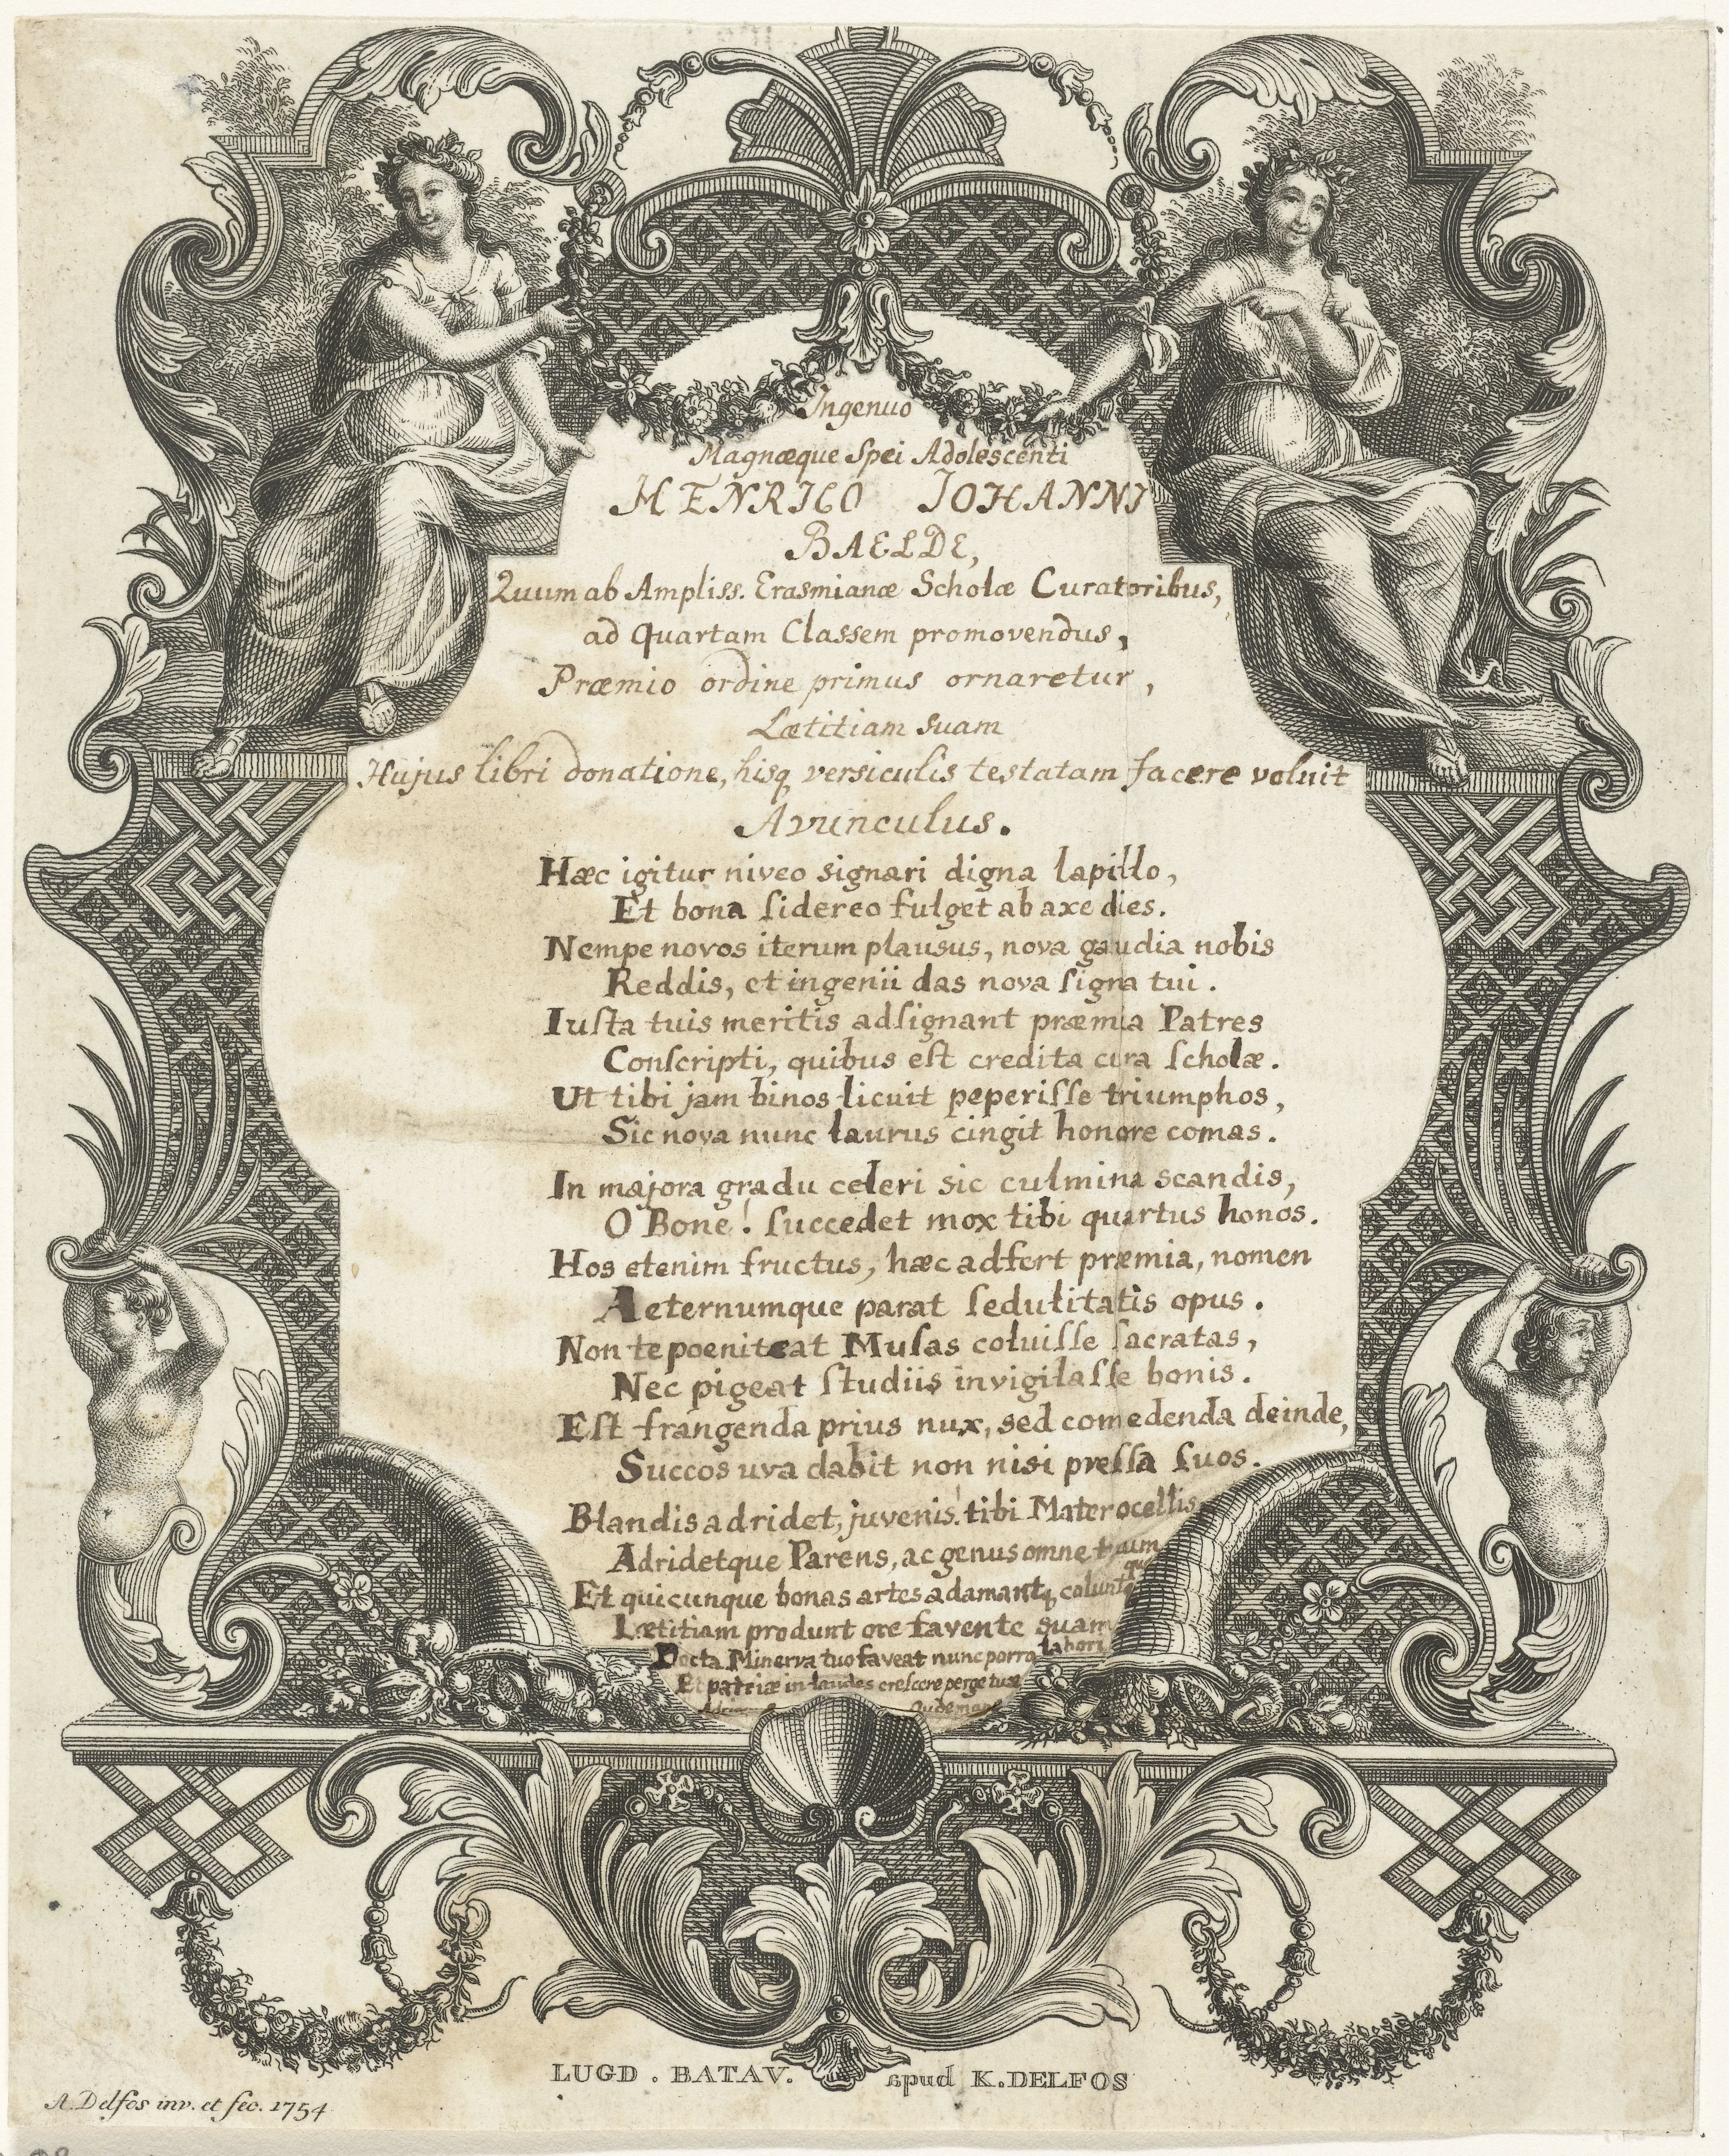 Ingenuo
Magnæque Spei Adolescenti
HENRICO IOHANNI
BAELDE,
Quum ab Ampliss. Erasmianæ Scholæ Curatoribus,
ad Quartam Classem promovendus,
Præmio ordine primus ornaretur,
Lætitiam suam
Hujus libri donatione, hisq versiculis testatam facere voluit
Avunculus.
Hæc igitur niveo signari digna lapillo,
Et bona ſidereo fulget ab axe dies.
Nempe novos iterum plausus, nova gaudia nobis
Reddis, et ingenii das nova ſigna tui.
Iuſta tuis meritis adſignant præmia Patres
Conſcripti, quibus eſt credita cura ſcholæ.
Ut tibi jam binos licuit peperiſſe triumphos,
Sic nova nunc laurus cingit honore comas.
In majora gradu celeri sic culmina scandis,
O Bone! ſuccedet mox tibi quartus honos.
Hos etenim fructus, hæc adfert præmia, nomen
Aeternumque parat ſedulitatis opus.
Non te poeniteat Muſas coluiſſe ſacratas,
Nec pigeat ſtudiis invigilaſſe bonis.
Eſt frangenda prius nux, sed comedenda deinde,
Succos uva dabit non nisi preſſa ſuos.
Blandis adridet, juvenis! tibi Mater ocellis
Adridetque Parens, ac genus omne tuum
Et quicunque bonas artes adamantq, coluntque
Lætitiam produnt ore favente suam
Docta Minerva tuo faveat nunc porro labori
Et patriæ in laudes creſcere perge tuæ
Oudemans
LUGD. BATAV. apud K. DELFOS
A. Delfos inv. et fec. 1754